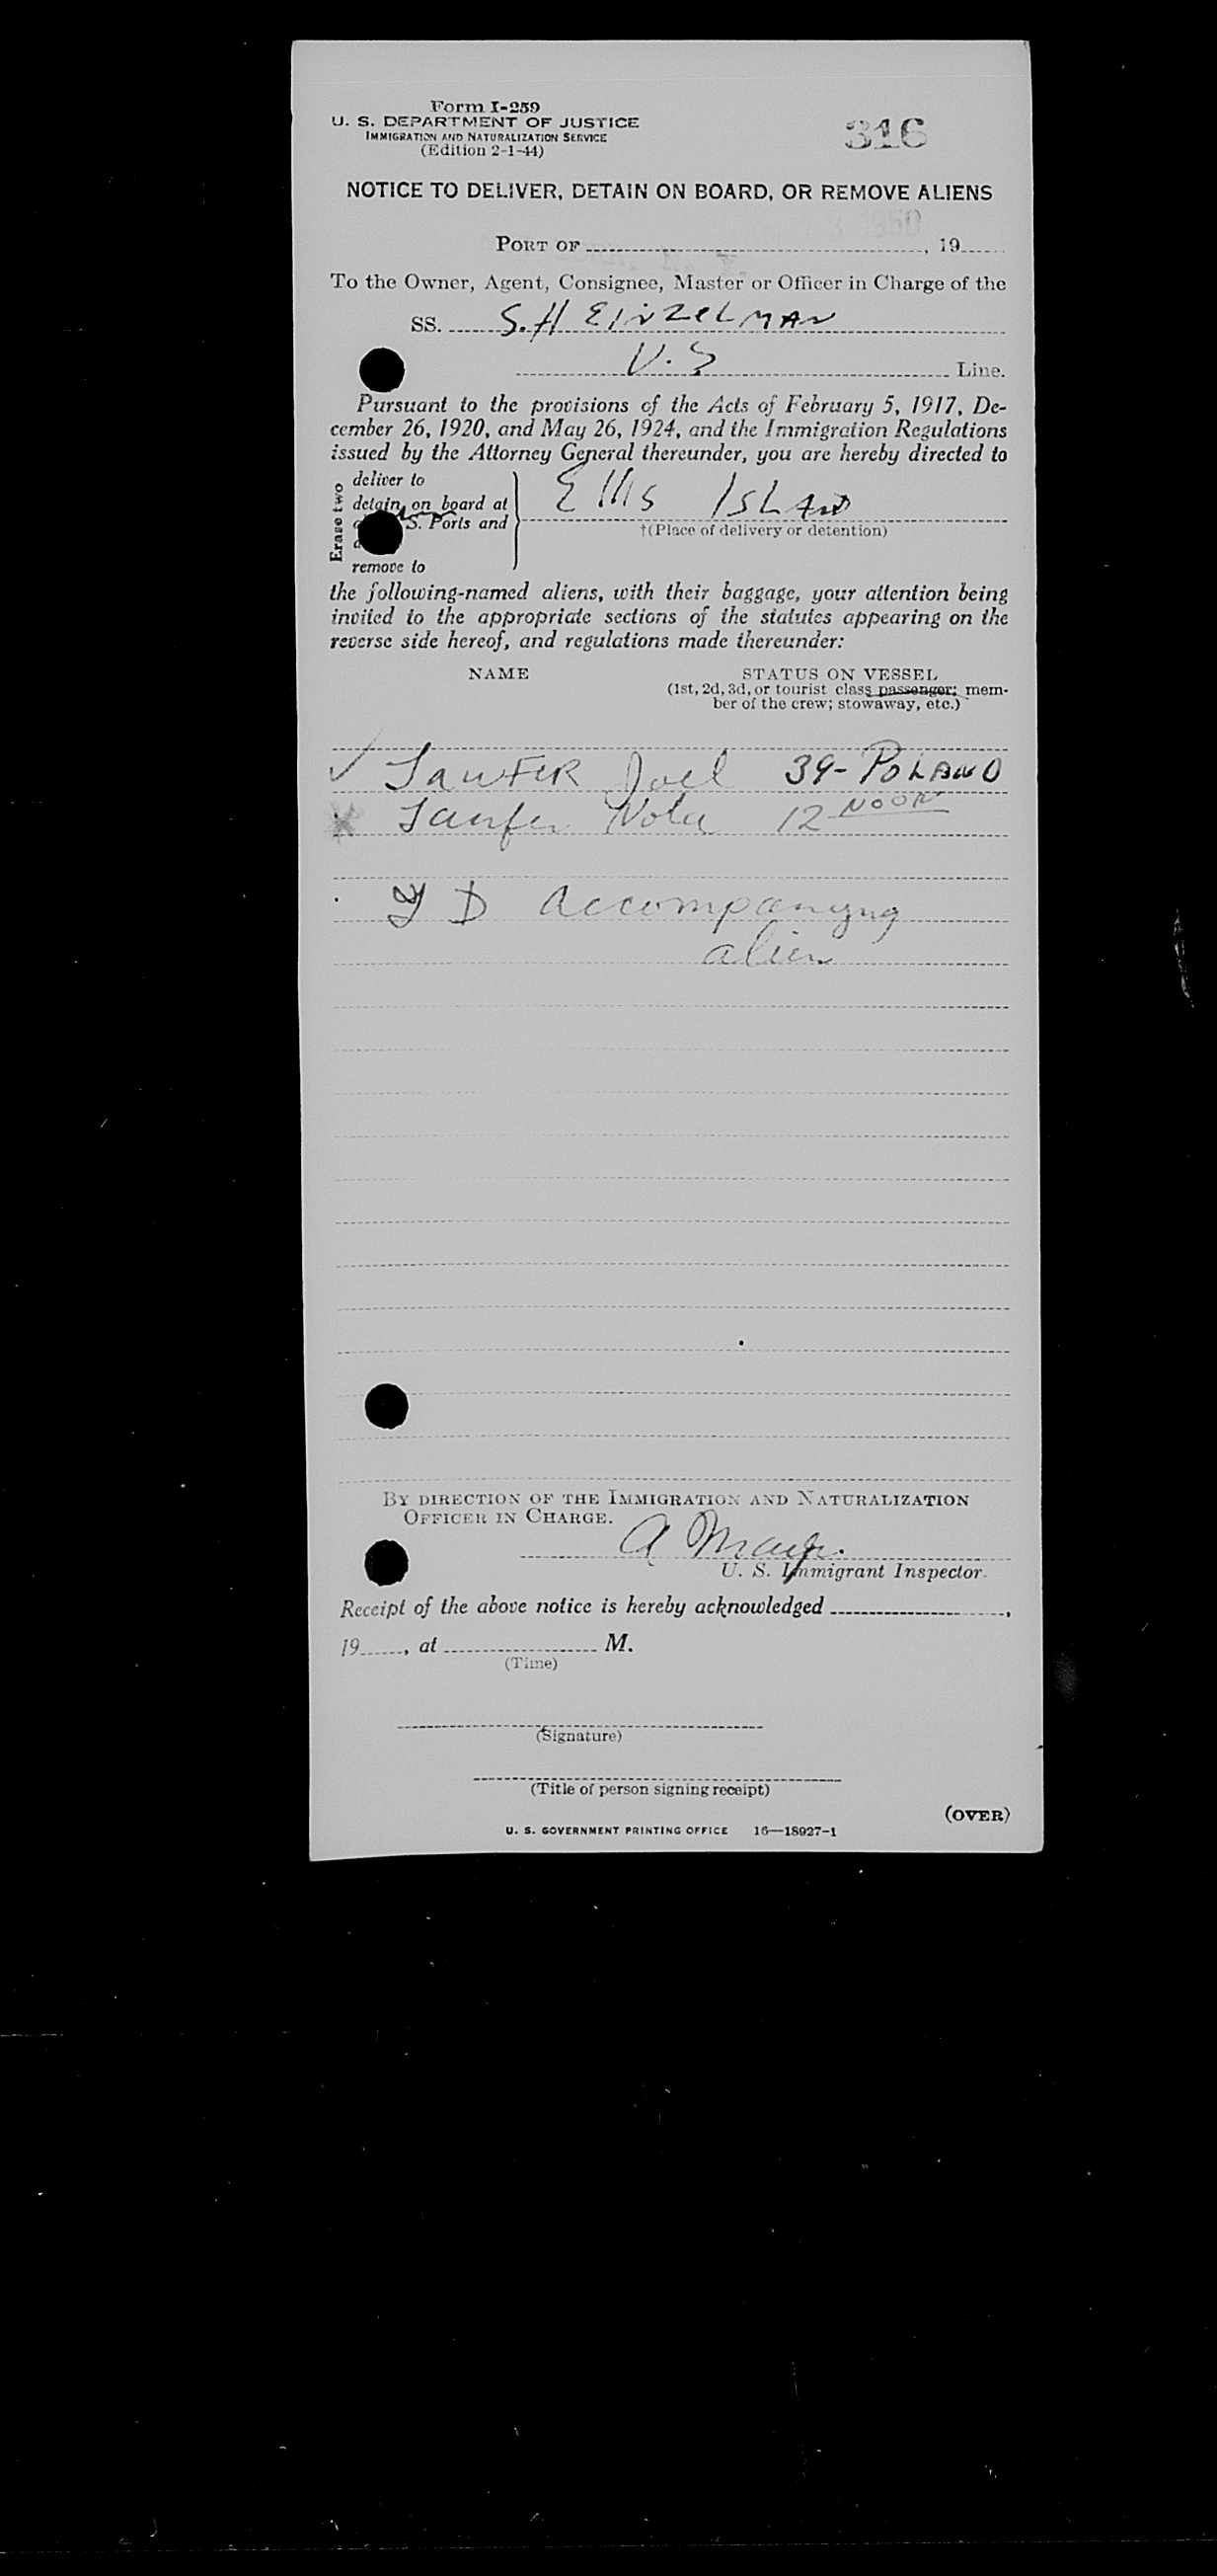 Form I-259
U. S. DEPARTMENT OF JUSTICE
IMMIGRATION AND NATURALIZATION SERVICE
(Edition 2-1-44)
316
NOTICE TO DELIVER, DETAIN ON BOARD, OR REMOVE ALIENS
PORT OF , 19
To the Owner, Agent, Consignee, Master or Officer in Charge of the
SS. S.H EINZELMAN
U.S Line.
Pursuant to the provisions of the Acts of February 5, 1917, De-
cember 26, 1920, and May 26, 1924, and the Immigration Regulations
issued by the Attorney General thereunder, you are hereby directed to
Erase two
deliver to
detain on board at
S. Ports and
remove to
Ellis Island
†(Place of delivery or detention)
the following-named aliens, with their baggage, your attention being
invited to the appropriate sections of the statutes appearing on the
reverse side hereof, and regulations made thereunder:
NAME STATUS ON VESSEL
(1st, 2d, 3d, or tourist class passenger; mem-
ber of the crew; stowaway, etc.)
Joel 39- POLAND
12 NOON
D Accompanyng
alien
BY DIRECTION OF THE IMMIGRATION AND NATURALIZATION
OFFICER IN CHARGE.
A
U. S. Immigrant Inspector.
Receipt of the above notice is hereby acknowledged ,
19 , at M.
(Time)
(Signature)
(Title of person signing receipt)
(OVER)
U. S. GOVERNMENT PRINTING OFFICE 16—18927-1